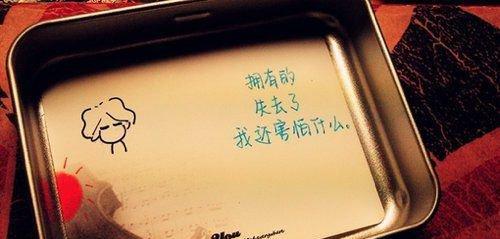 拥有的
失去了
我还害怕什么。
You